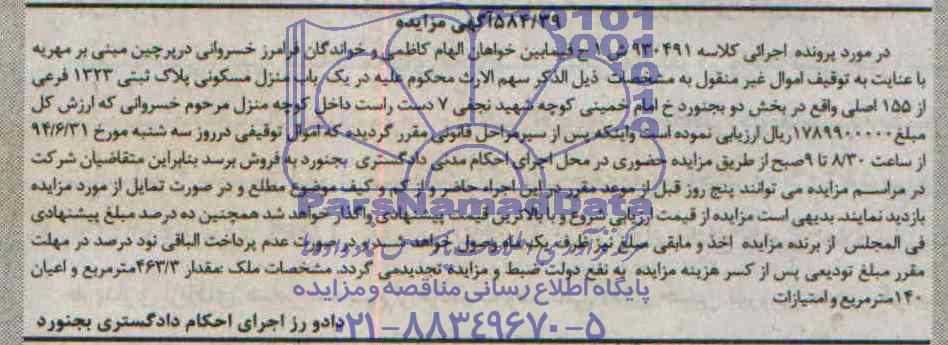 ۵۸۴/۳۹آگهی مزایده
در مورد پرونده اجرائی کلاسه ۹۳۰۴۹۱ ش ۱ ح فیمابین خواهان الهام کاظمی و خواندگان فرامرز خسروانی درپرچین مبنی بر مهریه
با عنایت به توقیف اموال غیر منقول به مشخصات ذیل الذکر سهم الارث محکوم علیه در یک باب منزل مسکونی پلاک ثبتی ۱۳۲۳ فرعی
از ۱۵۵ اصلی واقع در بخش دو بجنورد خ امام خمینی کوچه شهید نجفی ۷ دست راست داخل کوچه منزل مرحوم خسروانی که ارزش کل
مبلغ ۱۷۸۹۹۰۰۰۰۰ریال ارزیابی نموده است واینکه پس از سیرمراحل قانونی مقرر گردیده که اموال توقیفی درروز سه شنبه مورخ ۹۴/۶/۳۱
از ساعت ۸/۳۰ تا ۹صبح از طریق مزایده حضوری در محل اجرای احکام مدنی دادگستری بجنورد به فروش برسد بنابراین متقاضیان شرکت
در مراسم مزایده می توانند پنج روز قبل از موعد مقرر در این اجراء حاضر و از کم و کیف موضوع مطلع و در صورت تمایل از مورد مزایده
بازدید نمایند. بدیهی است مزایده از قیمت ارزیابی شروع و با بالاترین قیمت پیشنهادی واگذار خواهد شد همچنین ده درصد مبلغ پیشنهادی
فی المجلس از برنده مزایده اخذ و مابقی مبلغ نیز ظرف یک ماه وصول خواهد شد و در صورت عدم پرداخت الباقی نود درصد در مهلت
مقرر مبلغ تودیعی پس از کسر هزینه مزایده به نفع دولت ضبط و مزایده تجدیدمی گردد. مشخصات ملک :مقدار ۴۶۳/۳مترمربع و اعیان
۱۴۰مترمربع و امتیازات
دادو رز اجرای احکام دادگستری بجنورد
ParsNamadData
پایگاه اطلاع رسانی مناقصه و مزایده
۰۲۱-۸۸۳۴۹۶۷۰-۵